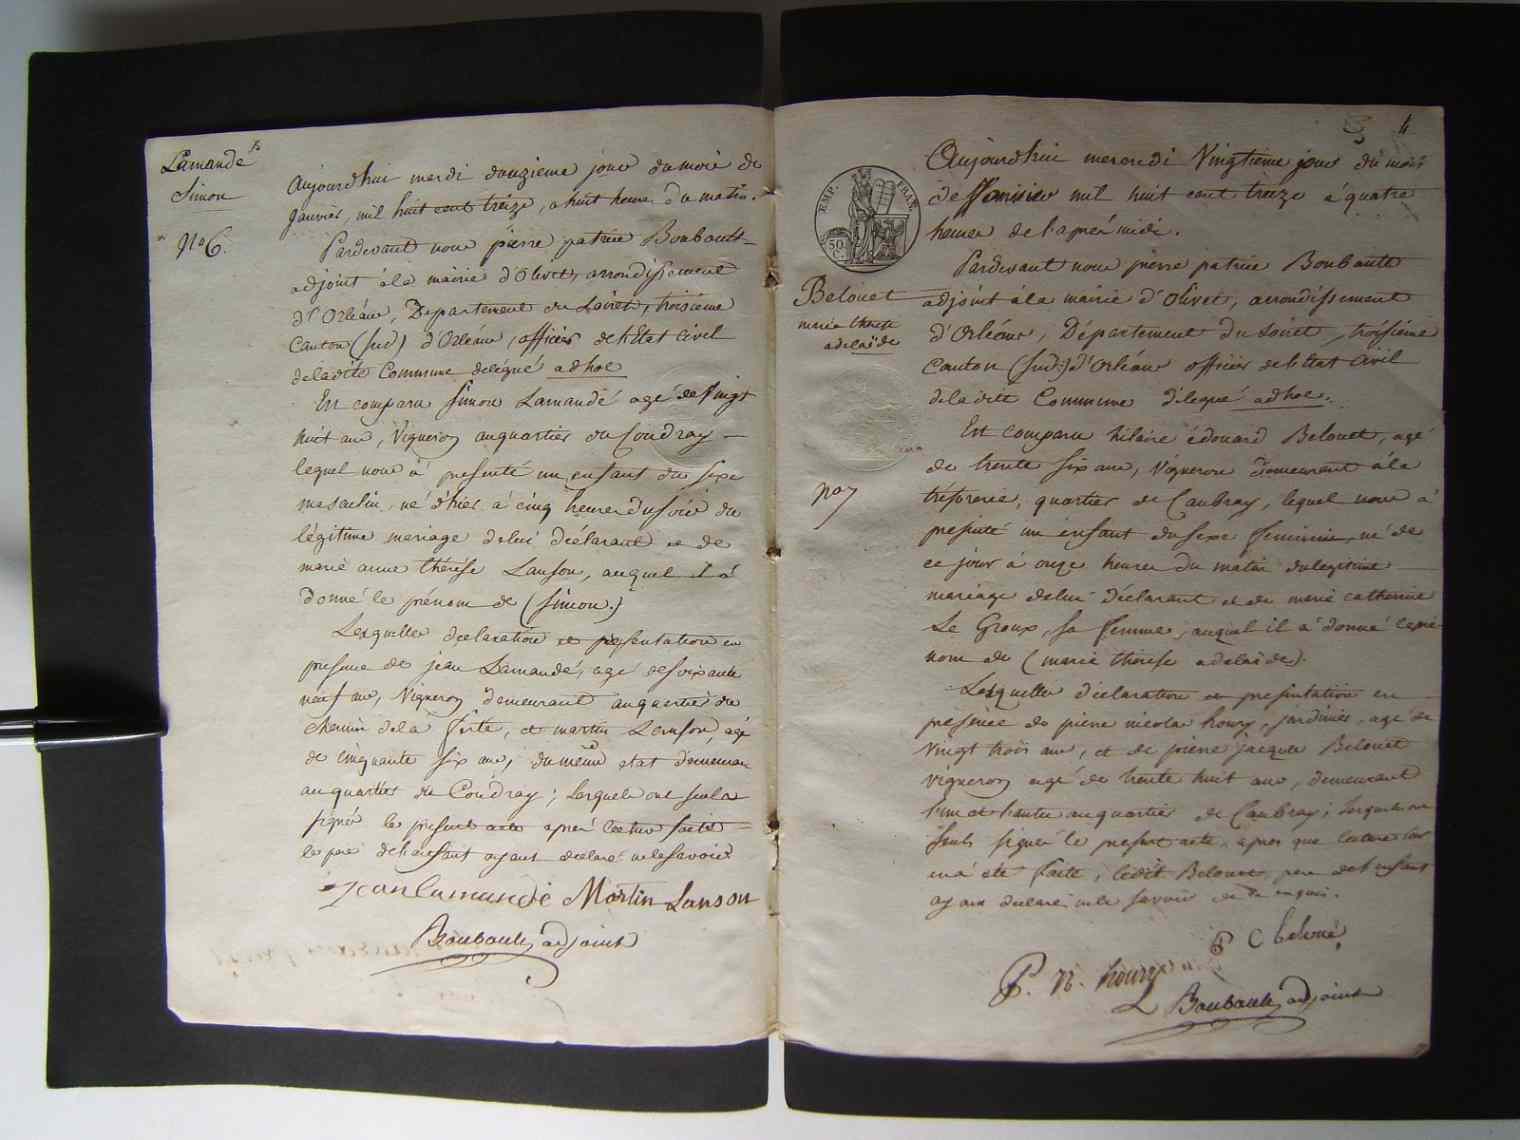 Lamandé
Simon
No 6.
Aujourdhui mardi douzieme jour du mois de
janvier, mil huit cent treize, a huit heure du matin.
Pardevant nous pierre patrice Boubault
adjoint à la mairie d'Olivet, arrondissement
d'Orléans, Département du Loiret, troisieme
Canton (sud) d'Orléans, officier de l'Etat Civil
de ladite Commune délégué ad hoc
Est comparu Simon Lamandé agé de Vingt
huit ans, Vigneron au quartier du Coudray
lequel nous à presenté un enfant du sexe
masculin, né d'hier à cinq heures du soir du
légitime mariage de lui déclarant et de
marie anne thérése Lanson, auquel il à
donné le prénom de (Simon.)
Lesquelles déclaration et présentation en
presence de jean Lamandé, agé de soixante
neuf ans, Vigneron demeurant au quartier du
Chemin de la ferté, et martin Lanson, agé
de cinquante six ans, du même état demeurant
au quartier du Coudray; Lesquels ont seuls
signés le présent acte après lecture faite
le pere de l'enfant ayant declaré ne le savoir
Jean lamandé Martin Lanson
Boubault adjoint
4
Aujourdhui mercredi Vingtieme jour du mois
de janvier mil huit cent treize à quatre
heures de l'après midi.
EMP. FRAN.
50
C.
Pardevant nous pierre patrice Boubault
Belouet
adjoint à la mairie d'Olivet, arrondissement
marie therese
adelaïde
d'Orléans, Département du Loiret, troisiéme
Canton (Sud) d'Orléans officier de l'Etat Civil
de la dite Commune délégué ad hoc.
Est comparu hilaire édouard Belouet, agé
de trente six ans, Vigneron demeurant à la
no 7
trésorerie, quartier de Caubray, lequel nous à
présenté un enfant du sexe feminin, né de
ce jour à onze heures du matin du légitime
mariage de lui déclarant et de marie catherine
Le Groux, sa femme, auquel il à donné le pré
nom de (marie thérèse adelaïde).
Lesquelles déclaration et présentation en
présence de pierre nicolas houry, jardinier, agé de
vingt trois ans, et de pierre jacques Belouet
vigneron agé de trente huit ans, demeurant
l'un et l'autre au quartier de Caubray; Lesquels ont
seuls signés le présent acte, après que lecture leur
en a été faite, ledit Belouet, pere de l'enfant
ayant declaré ne le savoir de ce enquis.
P. N. houry
Boubault adjoint